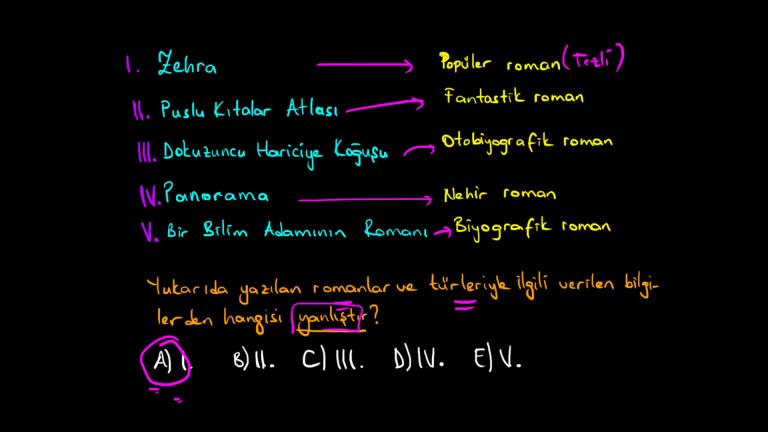 I. Zehra → Popüler roman (Tezli)
II. Puslu Kıtalar Atlası → Fantastik roman
III. Dokuzuncu Hariciye Koğuşu → Otobiyografik roman
IV. Panorama → Nehir roman
V. Bir Bilim Adamının Romanı → Biyografik roman
Yukarıda yazılan romanlar ve türleriyle ilgili verilen bilgi-
lerden hangisi yanlıştır?
A) I. B) II. C) III. D) IV. E) V.